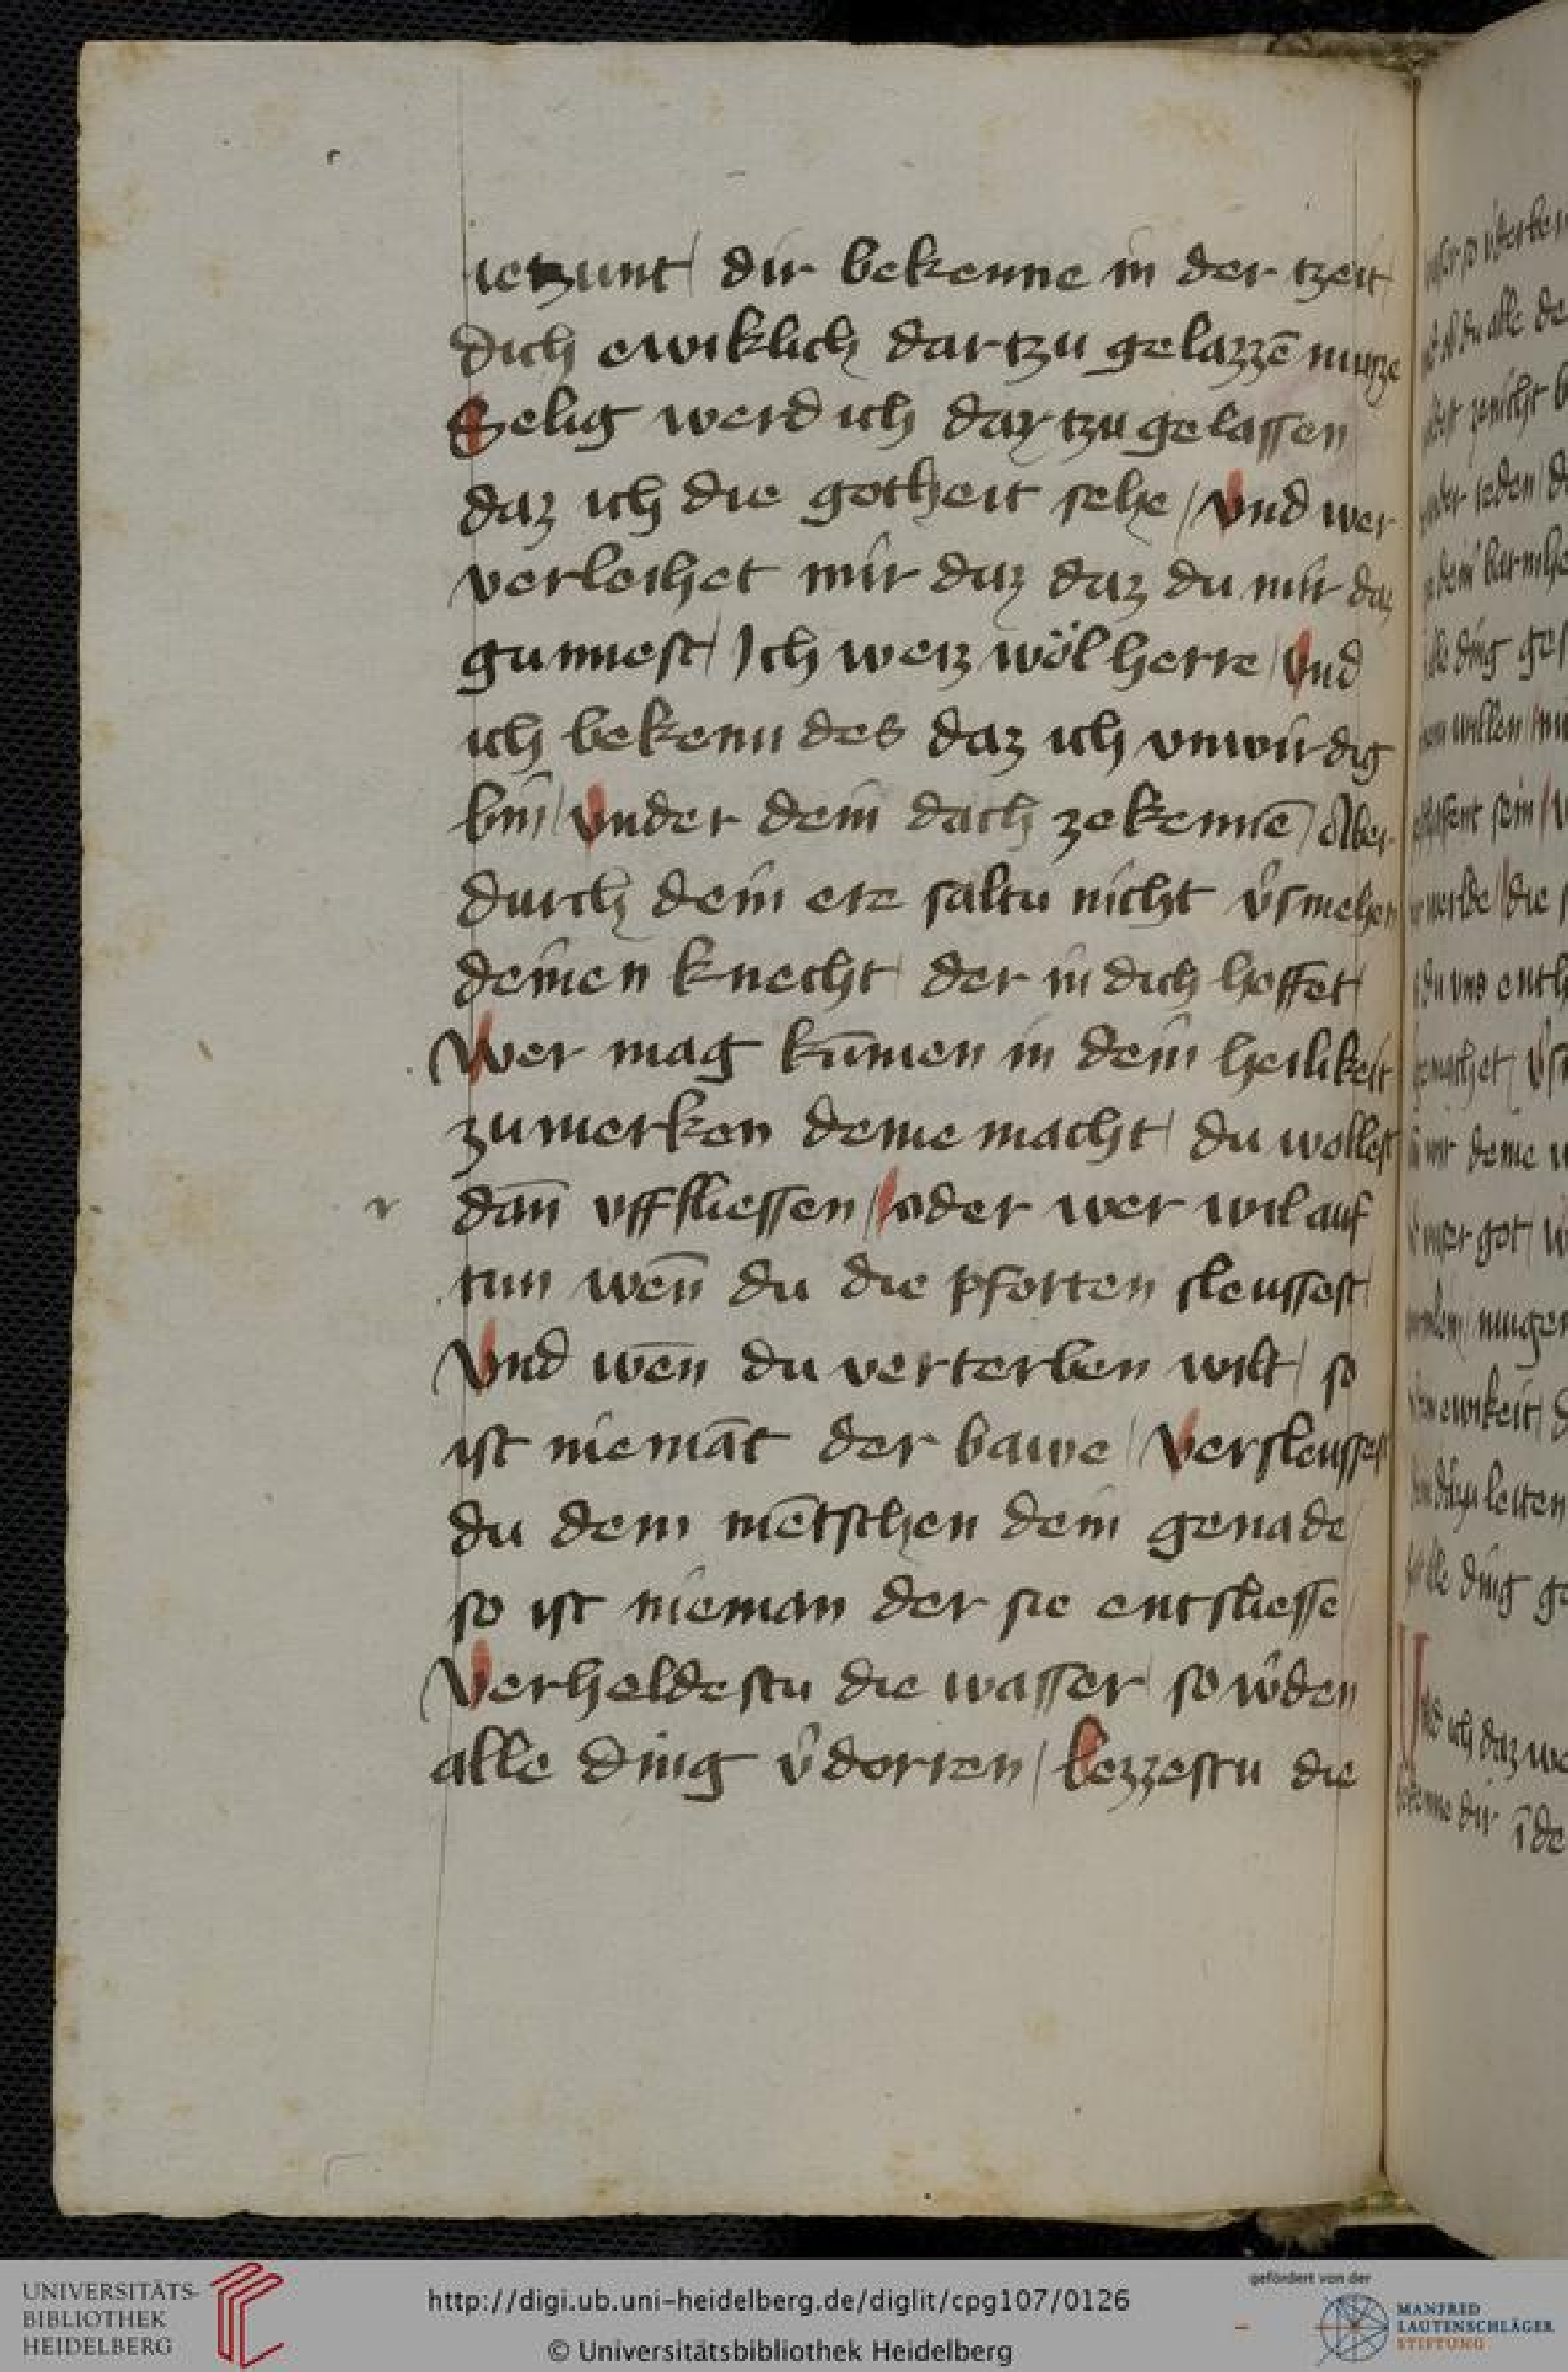 ietzunt / dir bekenne in der tzeit
dich ewiklich dar tzu gelazzē muzze
Selig werd ich dar tzu gelassen
daz ich die gotheit sehe / vnd wer
verleihet mir daz daz du mir daz
gunnest / Ich weiz wöl herre / vnd
ich bekenn des daz ich vnwirdig
bin / vnder dein dach ze kemē / Aber
durch dein ere saltu nicht v̓smehen
deinen knecht / der in dich hoffet /
Wer mag kūmen in dein heilikeit
zu merken deine macht / du wollest
dañ vff sliessen / oder wer wil auf
tun weñ du die pforten sleussest /
Vnd wēn du verterben wilt / so
ist niemāt der bawe / Versleussest
du dem mētschen dein genade /
so ist nieman der sie entsliesse /
Verheldestu die wasser / so w̓den
alle ding v̓dorren / lezzestu die
UNIVERSITÄTS-
BIBLIOTHEK
HEIDELBERG
http://digi.ub.uni-heidelberg.de/diglit/cpg107/0126
© Universitätsbibliothek Heidelberg
gefördert von der
MANFRED
LAUTENSCHLÄGER
STIFTUNG